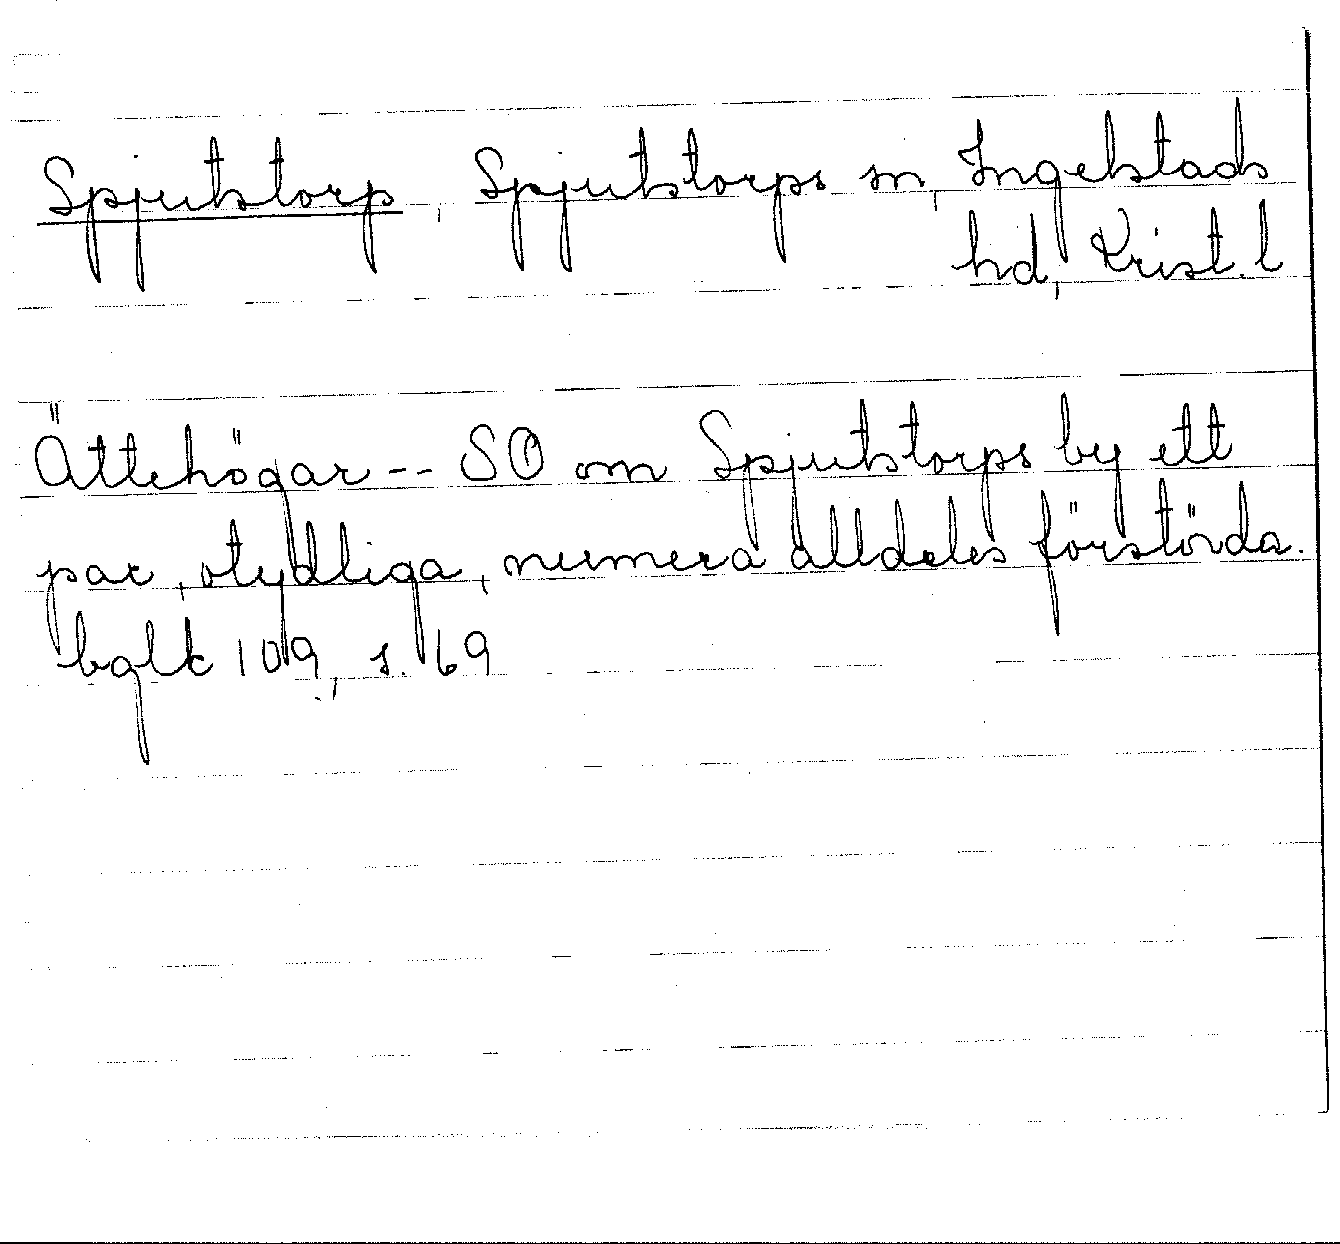 Spjutstorp, Spjutstorps sn, Ingelstads
hd, Krist. l
Ättehögar -- SO om Spjutstorps by ett
par, otydliga, numera alldeles förstörda.
bglk 109, s. 69